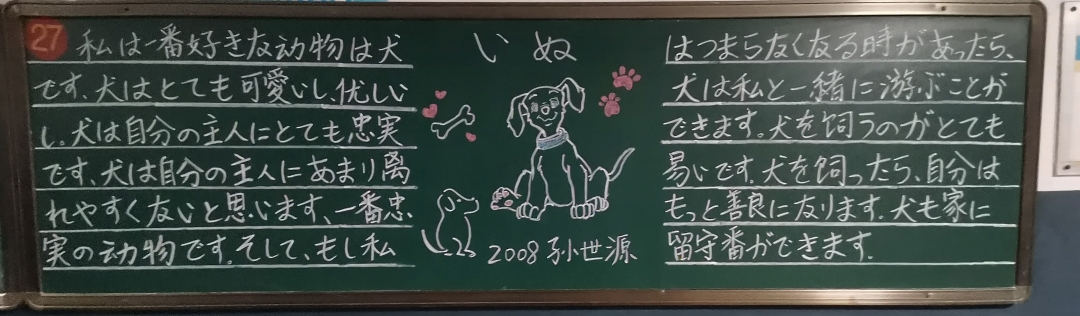 27
私は一番好きな动物は犬
です、犬はとても可愛いし、优しい
し。犬は自分の主人にとても忠実
です、犬は自分の主人にあまり离
れやすくないと思います、一番忠
実の动物です。そして、もし私
いぬ
2008 孙世源
はつまらなくなる時があったら、
犬は私と一緒に游ぶことが
できます。犬を饲うのがとても
易いです。犬を饲ったら、自分は
もっと善良になります。犬も家に
留守番ができます。